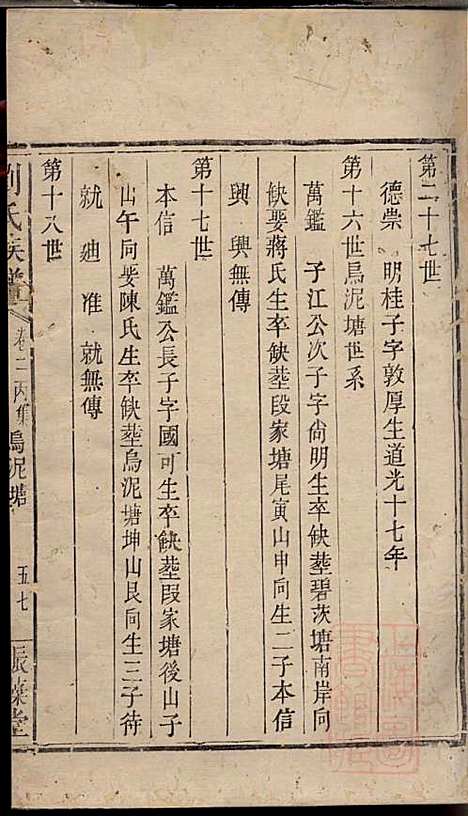 第二十七世
德崇　明桂子字敦厚生道光十七年
第十六世烏泥塘世系
萬鑑　子江公次子字尙明生卒缺塟碧茨塘南岸向
缺娶蔣氏生卒缺塟段家塘尾寅山申向生二子本信
興　興無傳
第十七世
本信　萬鑑公長子字國可生卒缺塟段家塘後山子
山午向娶陳氏生卒缺塟烏泥塘坤山艮向生三子待
就　廸　准　就無傳
第十八世
劉氏族譜　卷二丙集烏泥塘　五七　振藻堂